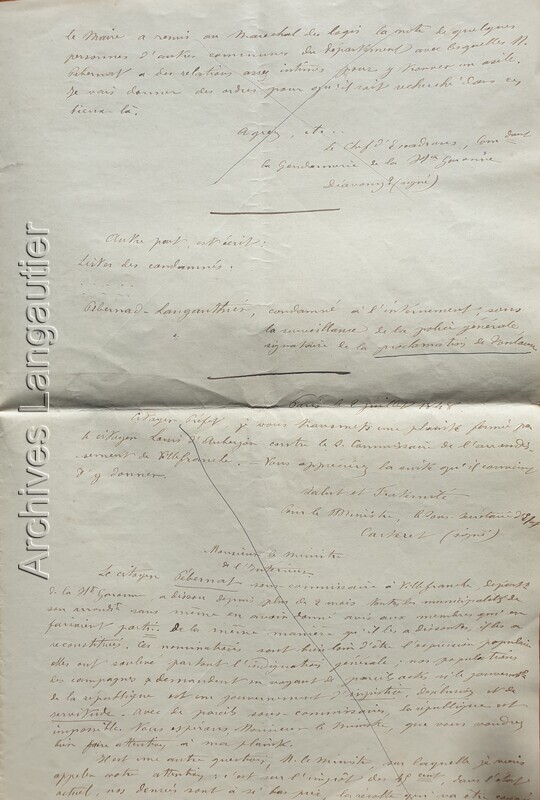 le Maire a remis au Maréchal des logis la note de quelques
personnes d'autres communes du département avec lesquelles M.
Pébernat a des relations assez intimes pour y trouver un asile.
Je vais donner des ordres pour qu'il soit recherché dans ces
lieux-là.
Agréez, etc..
Le Chef d'Escadrons, Comdant
la Gendarmerie de la Hte Garonne
(signé)
Autre part, est écrit:
Listes des condamnés.
Pébernad-Langauthier, condamné à l'internement sous
la surveillance de la police générale
signataire de la proclamation de Toulouse
Paris le 2 juillet 1848
Citoyen Préfet, je vous transmets une plainte formée par
le citoyen Louis d'Auberjon contre le S. Commissaire de l'arrondis
sement de Villefranche. - Vous apprécierez la suite qu'il convient
d'y donner.
Salut et Fraternité
Pour le Ministre, le Sous-secrétaire d'Etat
Carteret (signé)
Monsieur le Ministre
de l'Intérieur
Le citoyen Pébernat sous-commissaire à Villefranche départt
de la Hte Garonne, a dissous depuis plus de 2 mois toutes les municipalités de
son arrondt sans même en avoir donné avis aux membres qui en
faisaient partie. De la même manière qu'il les a dissoutes, il les a
reconstituées. Ces nominations sont bien loin d'être l'expression populaire
elles ont soulevé partout l'indignation générale; nos populations
des campagnes se demandent en voyant de pareils actes si le gouvernemt
de la république est un gouvernement d'injustice, et de
servitude. Avec de pareils sous-commissaires, la république est
impossible. Nous espérons Monsieur le Ministre, que vous voudrez
bien faire attention à ma plainte.
Il est une autre question, M. le Ministre, sur laquelle je dois
appeler votre attention; c'est sur l'impôt des 45 cent, dans l'état
actuel, nos denrées sont à si bas prix, la récolte qui va être